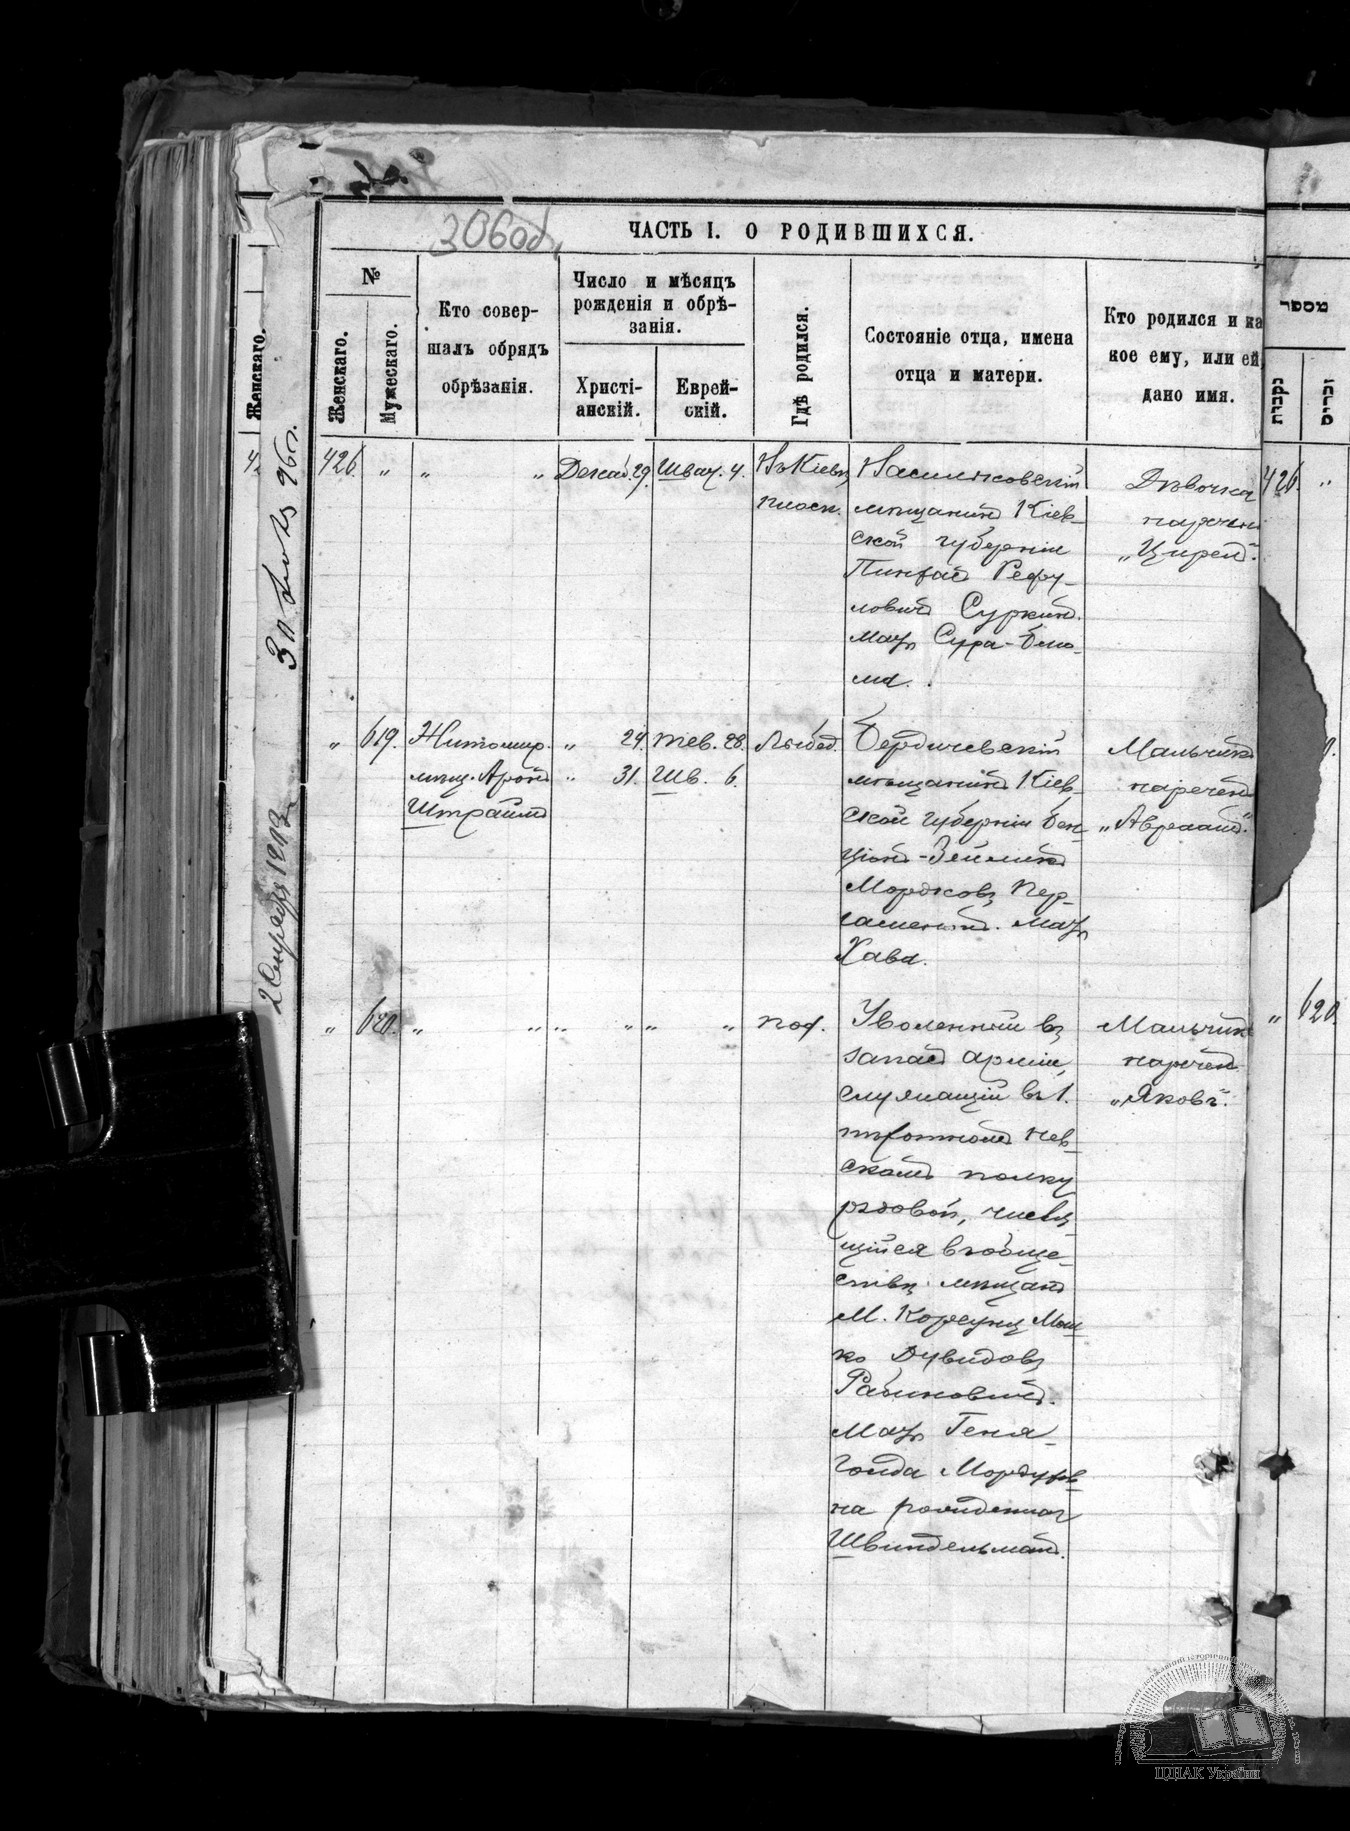 306об.
ЧАСТЬ I. О РОДИВШИХСЯ.
Женскаго.
№
Женскаго.
Мужескаго.
Кто совер-
шалъ обрядъ
обрѣзанія.
Число и мѣсяцъ
рожденія и обрѣ-
занія.
Христі-
анскій.
Еврей-
скій.
Гдѣ родился.
Состояніе отца, имена
отца и матери.
Кто родился и ка
кое ему, или ей,
дано имя.
מספר
נקבות
זכרים
426. " " " Декаб. 29. Шват. 4. Въ Кіевѣ
плоск.
Васильковскій
мѣщанинъ Кіев-
ской губерніи
Пинхасъ Рефу-
ловичъ Суркинъ.
мать Сура-Блю-
ма.
Дѣвочка
наречен
„Цирель".
426. "
" 619. Житомир.
мѣщ. Аронъ
Штраймъ
" 24. Тев. 28.
" 31. Шв. 6.
Лыбед.
Бердичевскій
мѣщанинъ Кіев-
ской губерніи Бен-
ціонъ-Зейликъ
Мордковъ Пер-
гаментъ. мать
Хава.
Мальчикъ
нареченъ
„Авраамъ".
" 620. " " " " " " под.
Уволенный въ
запасъ арміи,
служащій въ 1.
пѣхотномъ Нев-
скомъ полку
рядовой, числя-
щійся въ обще-
ствѣ мѣщанъ
М. Корсунъ Мош-
ко Дувидовъ
Рабиновичъ.
мать Геня-
Голда Мордухов-
на рожденная
Швиндельманъ.
Мальчикъ
наречен.
„Яковъ".
" 620.
ЦДІАК України